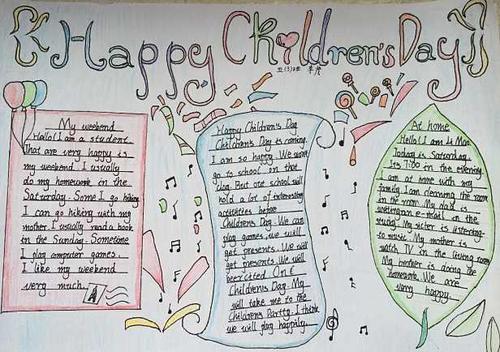 Happy Children's Day
My weekend
Hello! I am a student.
That are very happy is
my weekend. I usually
do my homework in the
Saturday. Some I go hiking
I can go hiking with my
mother. I usually read a book
in the Sunday. Sometime
I play computer games.
I like my weekend
very much.
Happy Children's Day
Children's Day is coming.
I am so happy. We won't
go to school in that
day. But our school will
hold a lot of interesting
activities before
Children's Day. We can
play games, we will
get presents. We will
get presents. We will
be excited. On
Children's Day. My
will take me to the
Children's Party. I think
we will play happily.
At home
Hello! I am is Mon.
Today is Saturday.
It's 7:00 in the evening.
I am at home with my
family. I am cleaning the room
in the room. My dad is
writing an e-mail in the
study. My sister is listening
to music. My mother is
watch TV in the living room.
My brother is doing the
homework. We are
very happy.